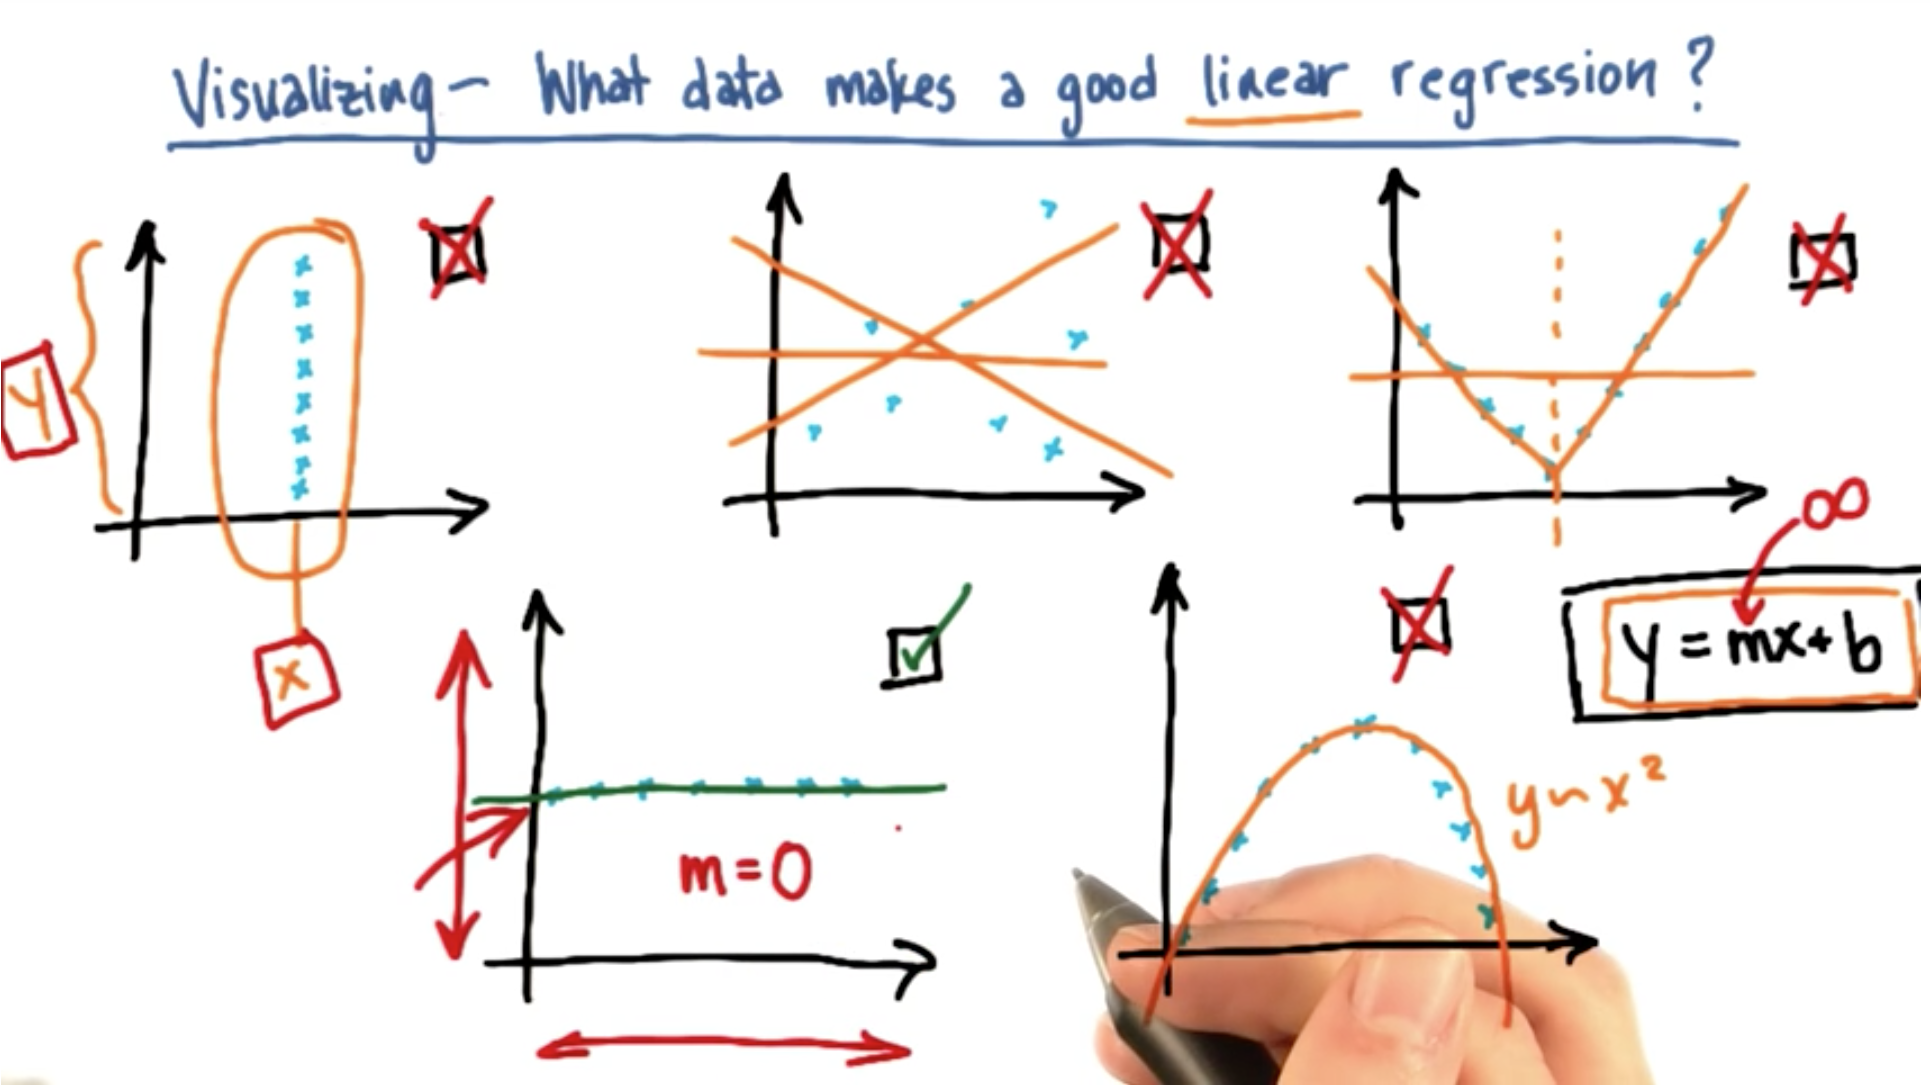 Visualizing - What data makes a good linear regression?
Y
x
∞
y = mx + b
m = 0
y ~ x²